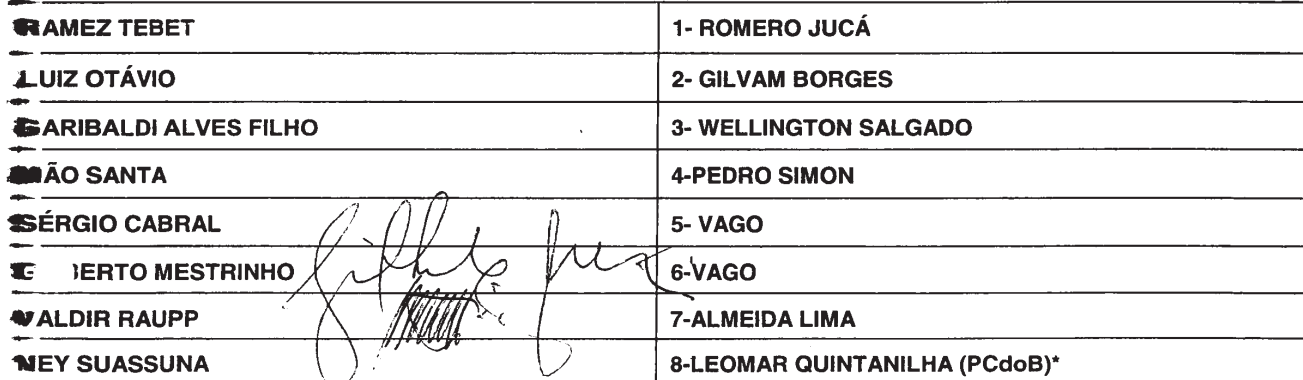 RAMEZ TEBET 1- ROMERO JUCÁ
LUIZ OTÁVIO 2- GILVAM BORGES
GARIBALDI ALVES FILHO 3- WELLINGTON SALGADO
MÃO SANTA 4-PEDRO SIMON
SÉRGIO CABRAL 5- VAGO
MESTRINHO 6-VAGO
VALDIR RAUPP 7-ALMEIDA LIMA
NEY SUASSUNA 8-LEOMAR QUINTANILHA (PCdoB)*